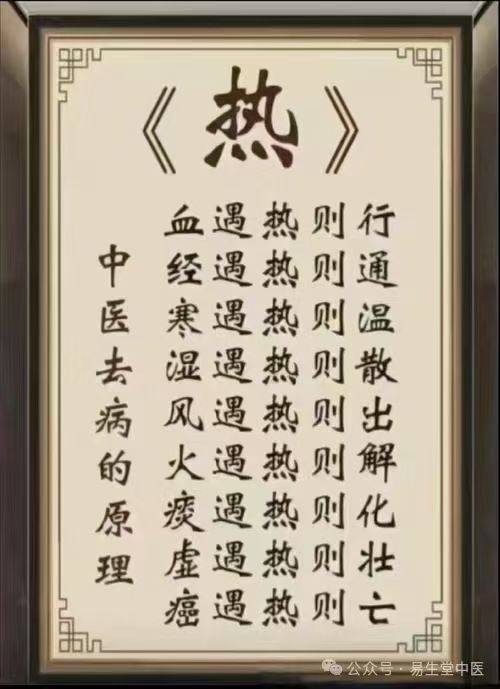 《热》
中医去病的原理
血遇热则行
经遇热则通
寒遇热则温
湿遇热则散
风遇热则出
火遇热则解
痰遇热则化
虚遇热则壮
癌遇热则亡
公众号·易生堂中医